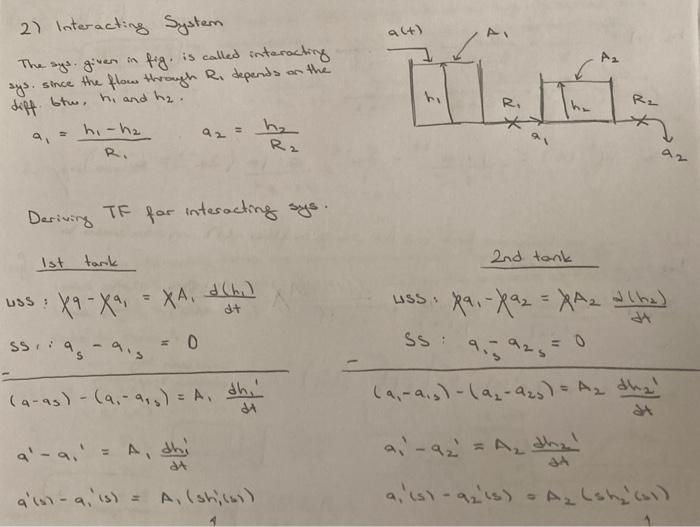 2) Interacting System
The sys. given in fig. is called interacting
sys. since the flow through R₁ depends on the
diff. btw. h₁ and h₂.
q₁ = (h₁ - h₂)/R₁    q₂ = h₂/R₂
q(t)
A₁
A₂
h₁
R₁
h₂
R₂
q₁
q₂
Deriving TF for interacting sys.
1st tank
uss: ρq - ρq₁ = ρA₁ d(h₁)/dt
ss: qₛ - q₁ₛ = 0
(q-qs) - (q₁-q₁ₛ) = A₁ dh₁'/dt
q' - q₁' = A₁ dh₁'/dt
q'(s) - q₁'(s) = A₁(sh₁'(s))
2nd tank
uss: ρq₁ - ρq₂ = ρA₂ d(h₂)/dt
ss: q₁ₛ - q₂ₛ = 0
(q₁-q₁ₛ) - (q₂-q₂ₛ) = A₂ dh₂'/dt
q₁' - q₂' = A₂ dh₂'/dt
q₁'(s) - q₂'(s) = A₂(sh₂'(s))